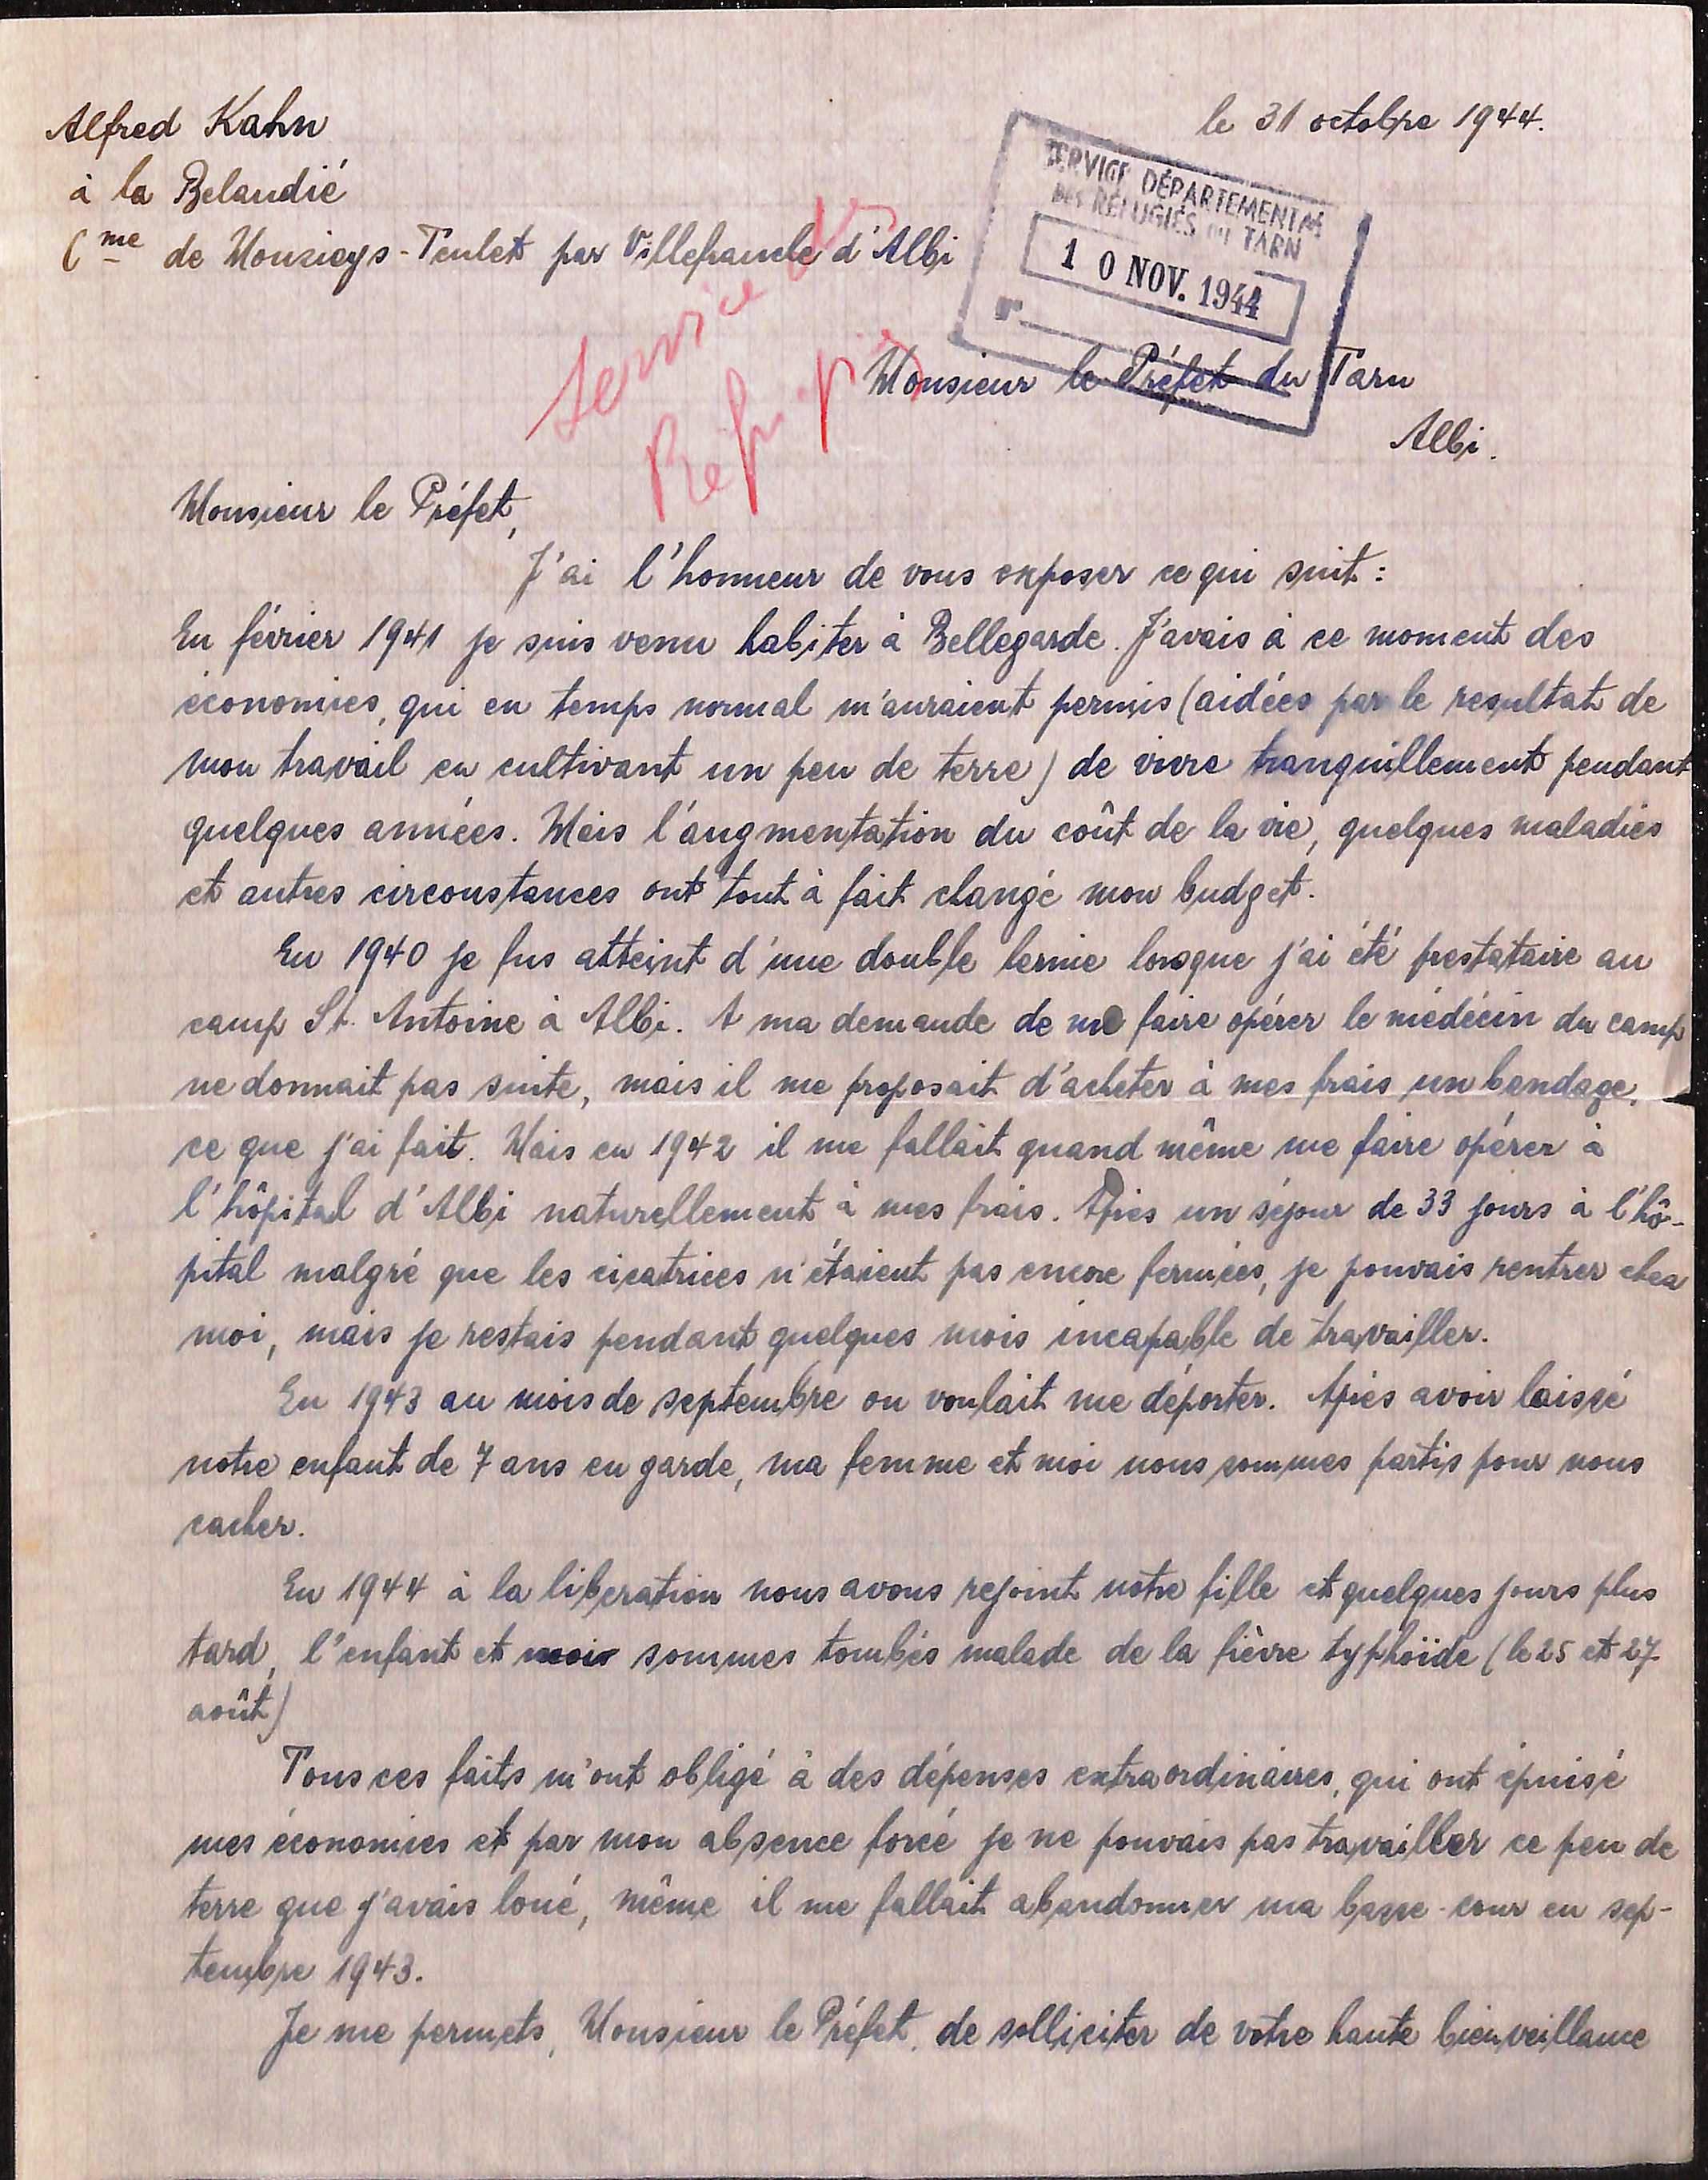 Alfred Kahn
le 31 octobre 1944.
à la Belaudié
Cme de Mouzieys-Teulet par Villefranche d'Albi
SERVICE DÉPARTEMENTAL
DES RÉFUGIÉS DU TARN
10 NOV. 1944
Service des
Réfugiés
Monsieur le Préfet du Tarn
Albi.
Monsieur le Préfet,
J'ai l'honneur de vous exposer ce qui suit :
En février 1941 je suis venu habiter à Bellegarde. J'avais à ce moment des
économies, qui en temps normal m'auraient permis (aidées par le resultat de
mon travail en cultivant un peu de terre) de vivre tranquillement pendant
quelques années. Mais l'augmentation du coût de la vie, quelques maladies
et autres circonstances ont tout à fait changé mon budget.
En 1940 je fus atteint d'une double hernie lorsque j'ai été prestataire au
camp St. Antoine à Albi. A ma demande de me faire opérer le médécin du camp
ne donnait pas suite, mais il me proposait d'acheter à mes frais un bandage,
ce que j'ai fait. Mais en 1942 il me fallait quand même me faire opérer à
l'hôpital d'Albi naturellement à mes frais. Après un séjour de 33 jours à l'hô-
pital malgré que les cicatrices n'étaient pas encore fermées, je pouvais rentrer chez
moi, mais je restais pendant quelques mois incapable de travailler.
En 1943 au mois de septembre on voulait me déporter. Après avoir laissé
notre enfant de 7 ans en garde, ma femme et moi nous sommes partis pour nous
cacher.
En 1944 à la liberation nous avons rejoint notre fille et quelques jours plus
tard, l'enfant et moi sommes tombés malade de la fièvre typhoïde (le 25 et 27
août)
Tous ces faits m'ont obligé à des dépenses extraordinaires, qui ont épuisé
mes économies et par mon absence forcé je ne pouvais pas travailler ce peu de
terre que j'avais loué, même il me fallait abandonner ma basse-cour en sep-
tembre 1943.
Je me permets, Monsieur le Préfet, de solliciter de votre haute bienveillance